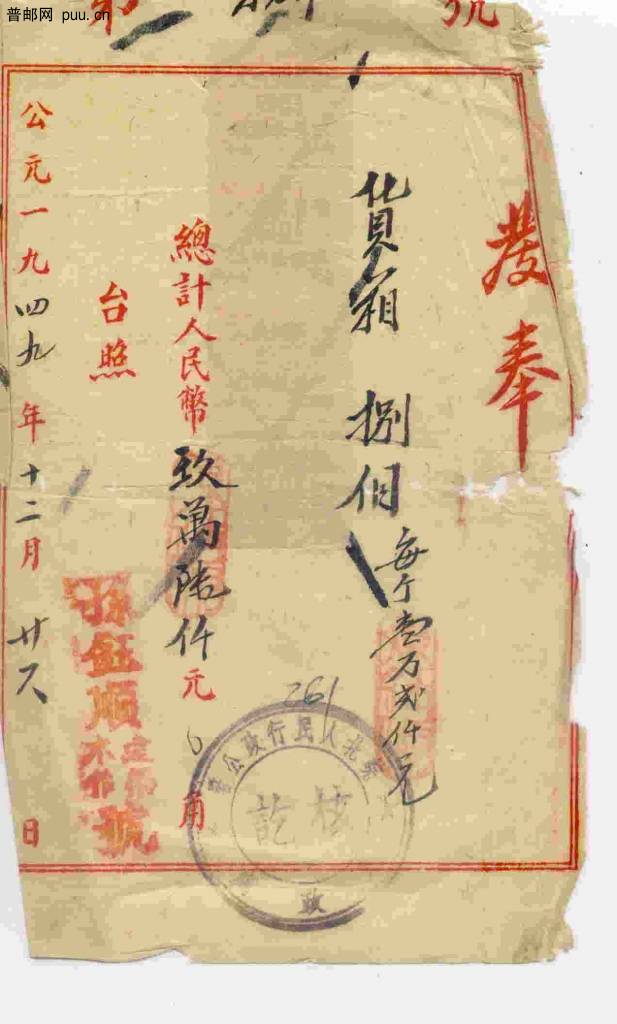 普邮网 puu.cn
第 號
發奉
貨箱 捌個 每个壹万弍仟元
總計人民幣玖萬陸仟元0角
台照
公元一九四九年十二月廿八日
順
木作
號
261
北人民行政公署
核訖
政